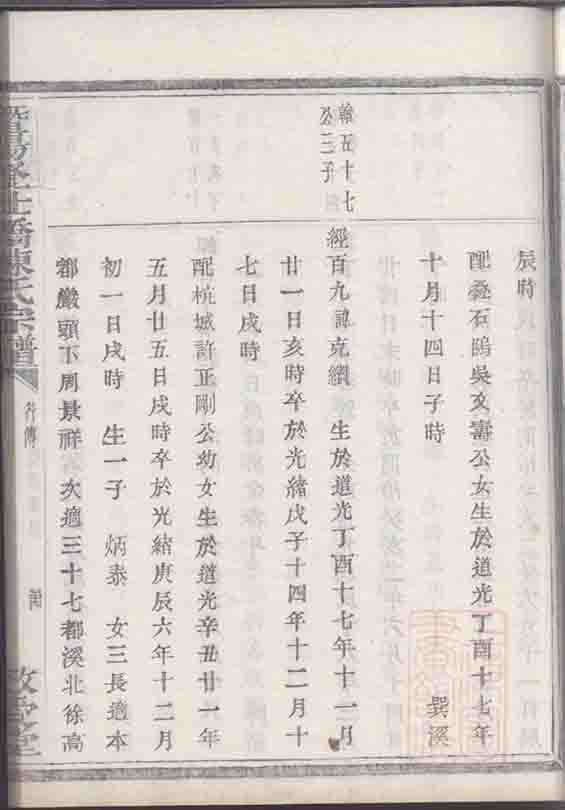 辰時
配疊石鴟吳文壽公女生於道光丁酉十七年
十月十四日子時　巽溪
翰五十七
公三子
經百九諱克纘　生於道光丁酉十七年十一月
廿一日亥時卒於光緒戊子十四年十二月十
七日戌時
配杭城許正剛公幼女生於道光辛丑廿一年
五月廿五日戌時卒於光緒庚辰六年十二月
初一日戌時　生一子　炳泰　女三長適本
都嚴頭下周景祥　次適三十七都溪北徐高
橋陳氏宗譜
外傳